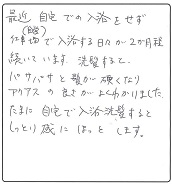 最近 自宅での入浴をせず
(自宅)
仕事場で入浴する日々が2か月程
続いています。洗髪すると、
パサパサと髪が硬くなり
アクアスの良さがよくわかりました。
たまに自宅で入浴洗髪すると
しっとり感にほっとします。